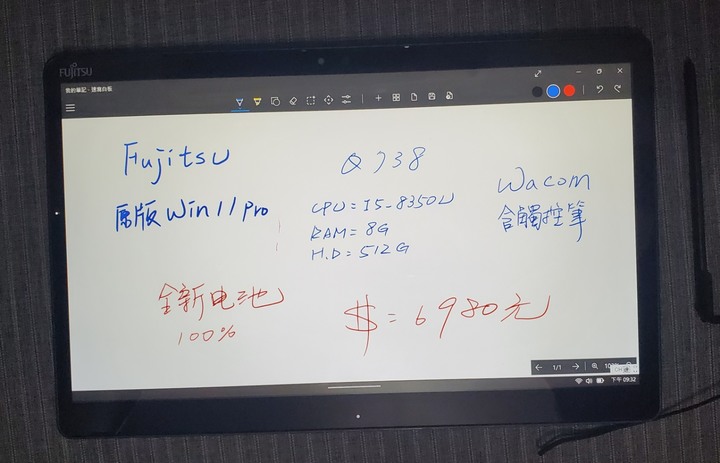 FUJITSU
我的筆記 - 捷鑫白板
Fujitsu
Q738
Wacom
含觸控筆
原版 Win11 Pro
CPU = I5-8350U
RAM = 8G
H.D = 512G
全新电池
100%
$ = 6980元
1/1
下午 09:32